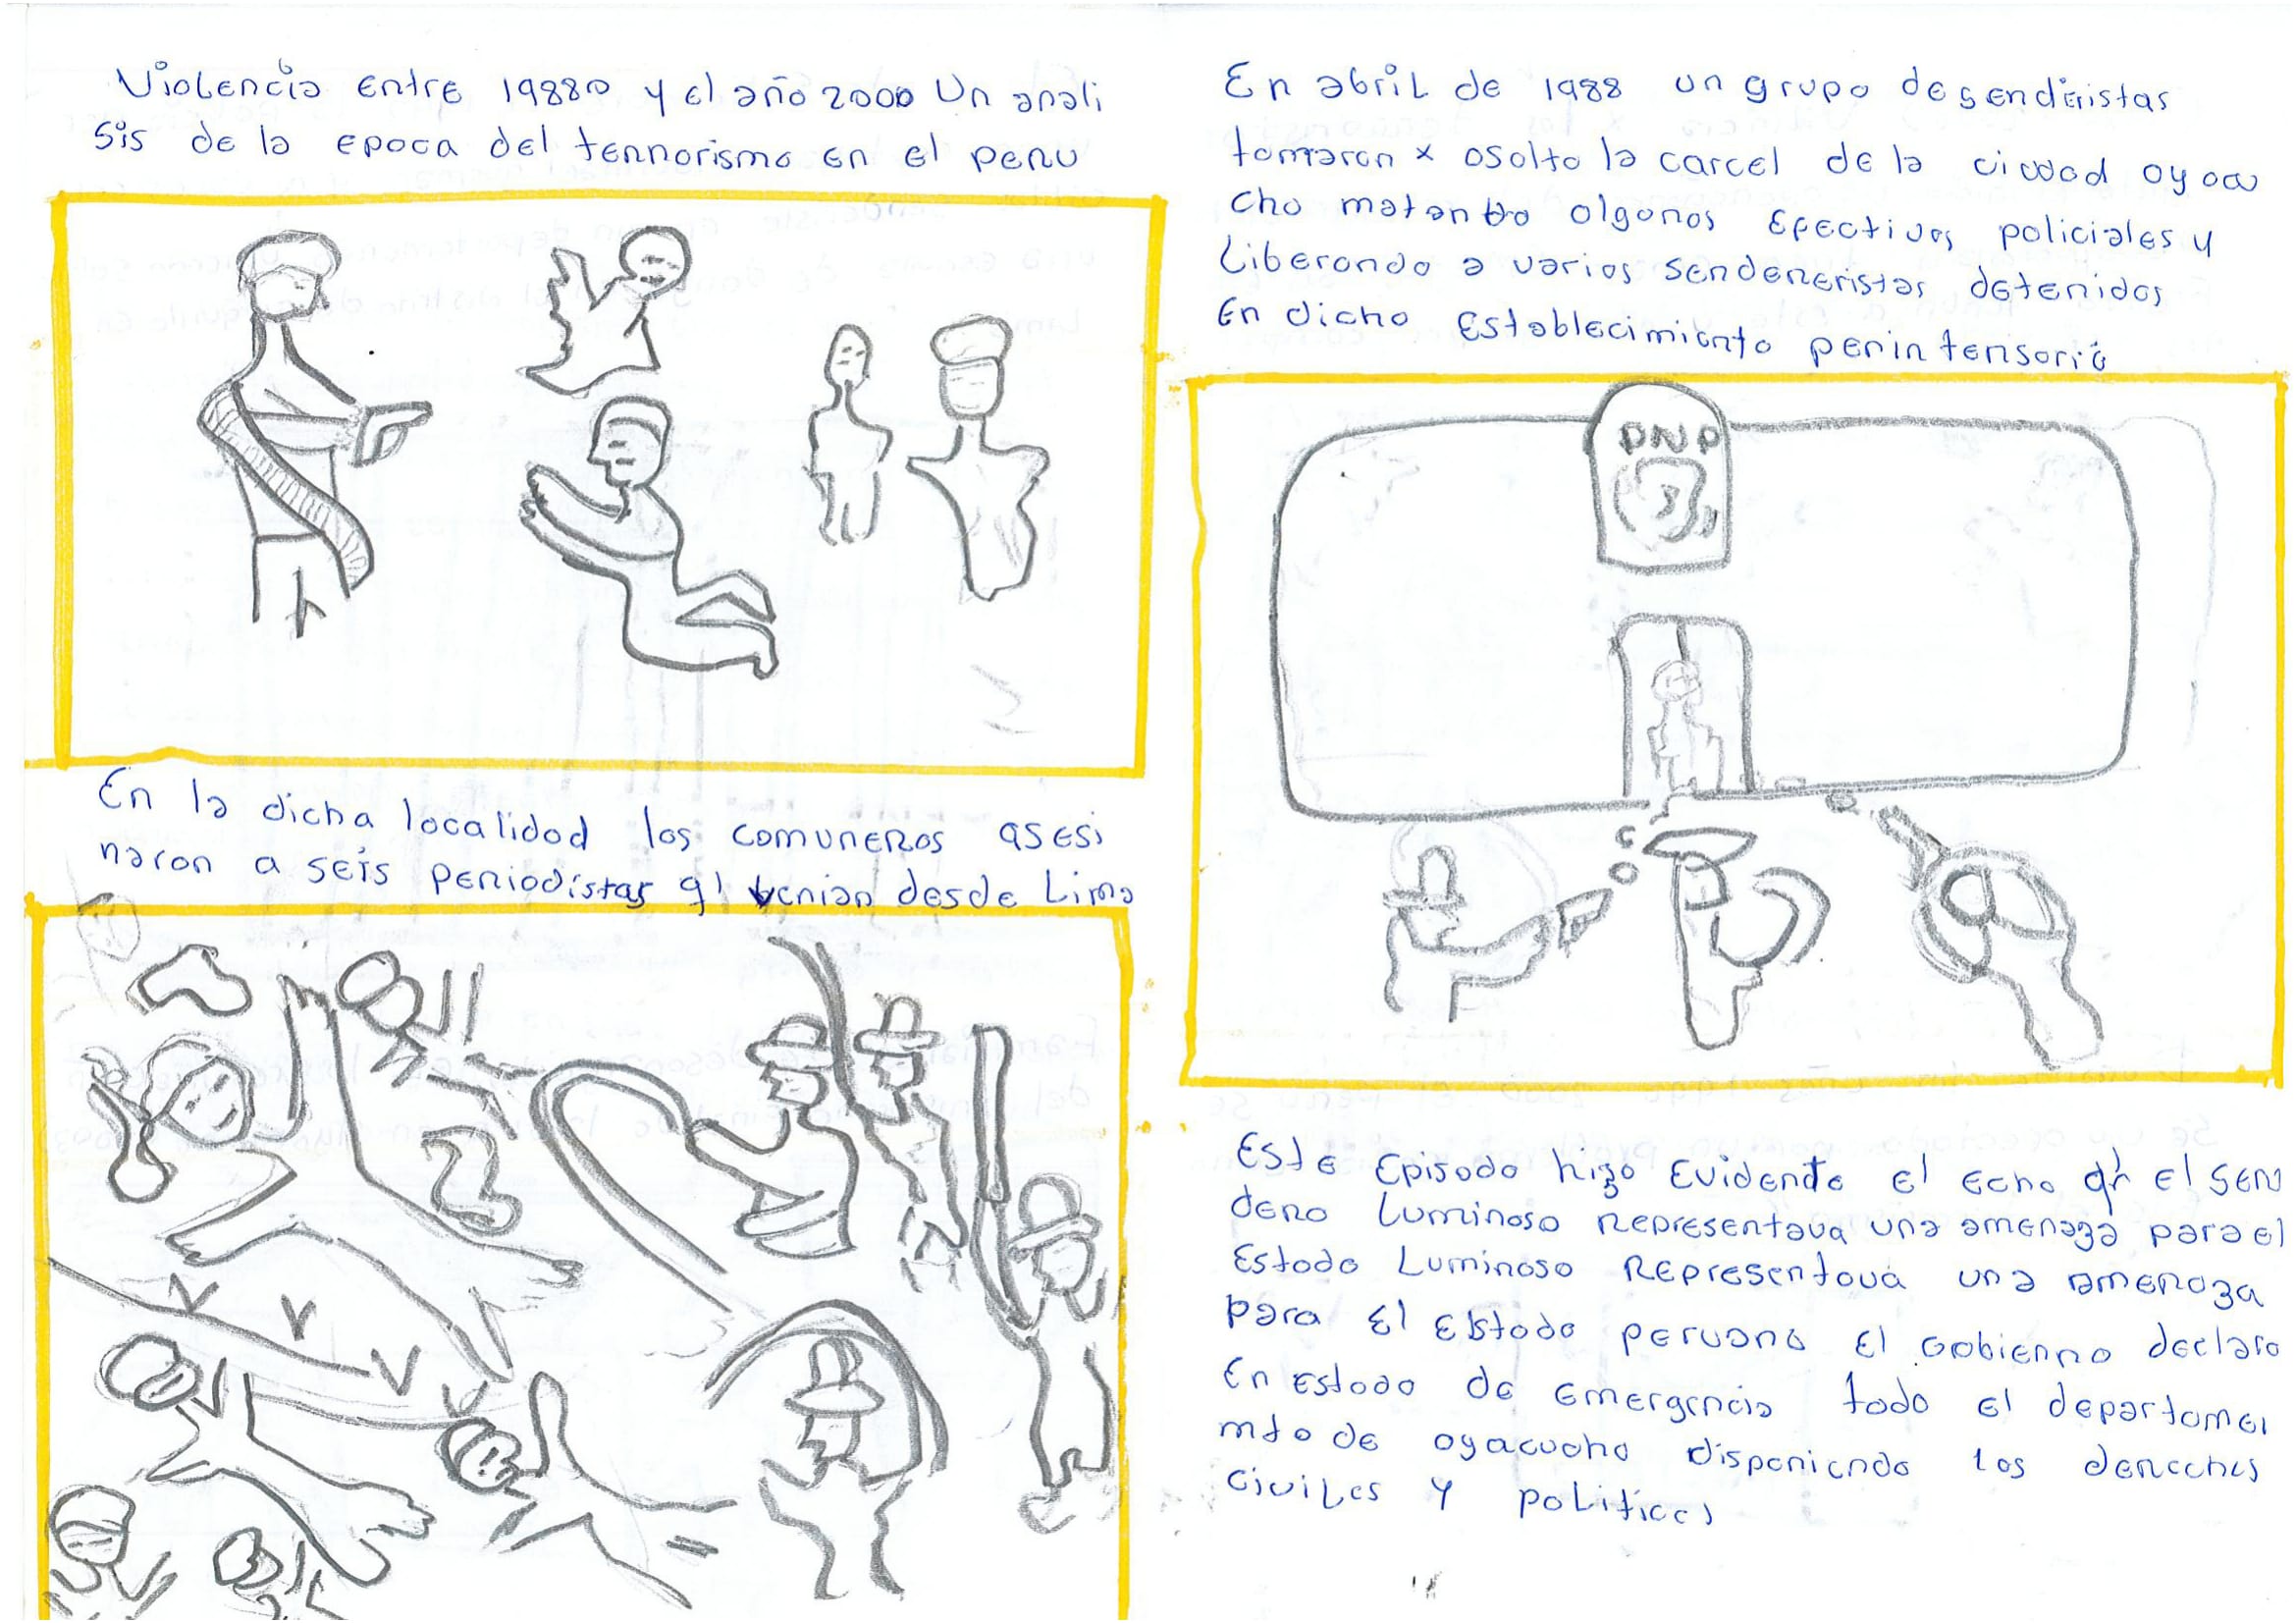 Violencia Entre 19880 y el año 2000 Un anali
sis de la epoca del tennorismo en el penu
En la dicha localidad los comuneros asesi
naron a seis periodistas q' venian desde Lima
En abril de 1988 un grupo de senderistas
tomaron x asolto la carcel de la ciudad ayacu
cho matando algonos efectivos policiales y
Liberando a varios sendeneristas detenidos
En dicho establecimiento penintensorió
PNP
Este Episodo hizo Evidente el Echo q' El SEN
deno Luminoso Representava una amenaza para el
Estado Luminoso Representava una amenaza
para El Estado peruano El Gobienno declaro
En estado de Emergencia todo el departamen
mto de ayacucho disponiendo los derechos
Civiles Y Politicos